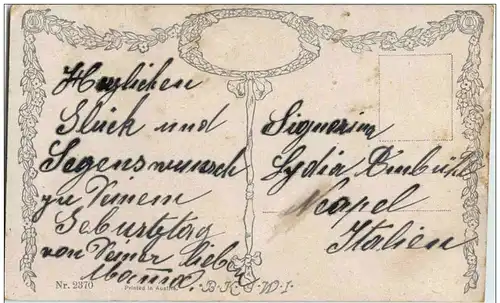 Herzlichen
Glück und
Segenswunsch
zu Deinem
Geburtstag
von Deiner lieben
Mama.
Signorina
Lydia
Neapel
Italien
Nr. 2370
Printed in Austria
B.K.W.I.